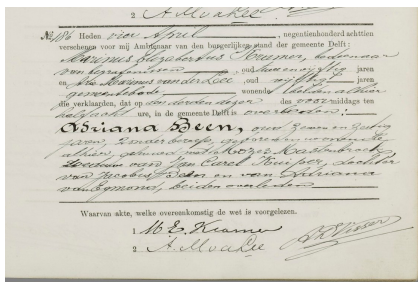 2 A. M v d Lee
No. 186 Heden vier April, negentienhonderd achttien
verschenen voor mij Ambtenaar van den burgerlijken stand der gemeente Delft:
Marinus Elizabertus Kramer, bedienaar
van begrafenissen, oud jaren
en Arie M van der Lee, oud vijftig jaren
gemeentebode, wonende beiden alhier
die verklaarden, dat op den derden dezer des voor-middags ten
half acht ure, in de gemeente Delft is overleden:
Adriana Been, oud zeven en zestig
jaren, zonder beroep, geboren en wonende
alhier, gehuwd met
weduwe van Jan Carel Kuijper, dochter
van Jacobus Been en van Adriana
van Egmond, beiden overleden
Waarvan akte, welke overeenkomstig de wet is voorgelezen.
1 M E. Kramer
2 A. M v d Lee